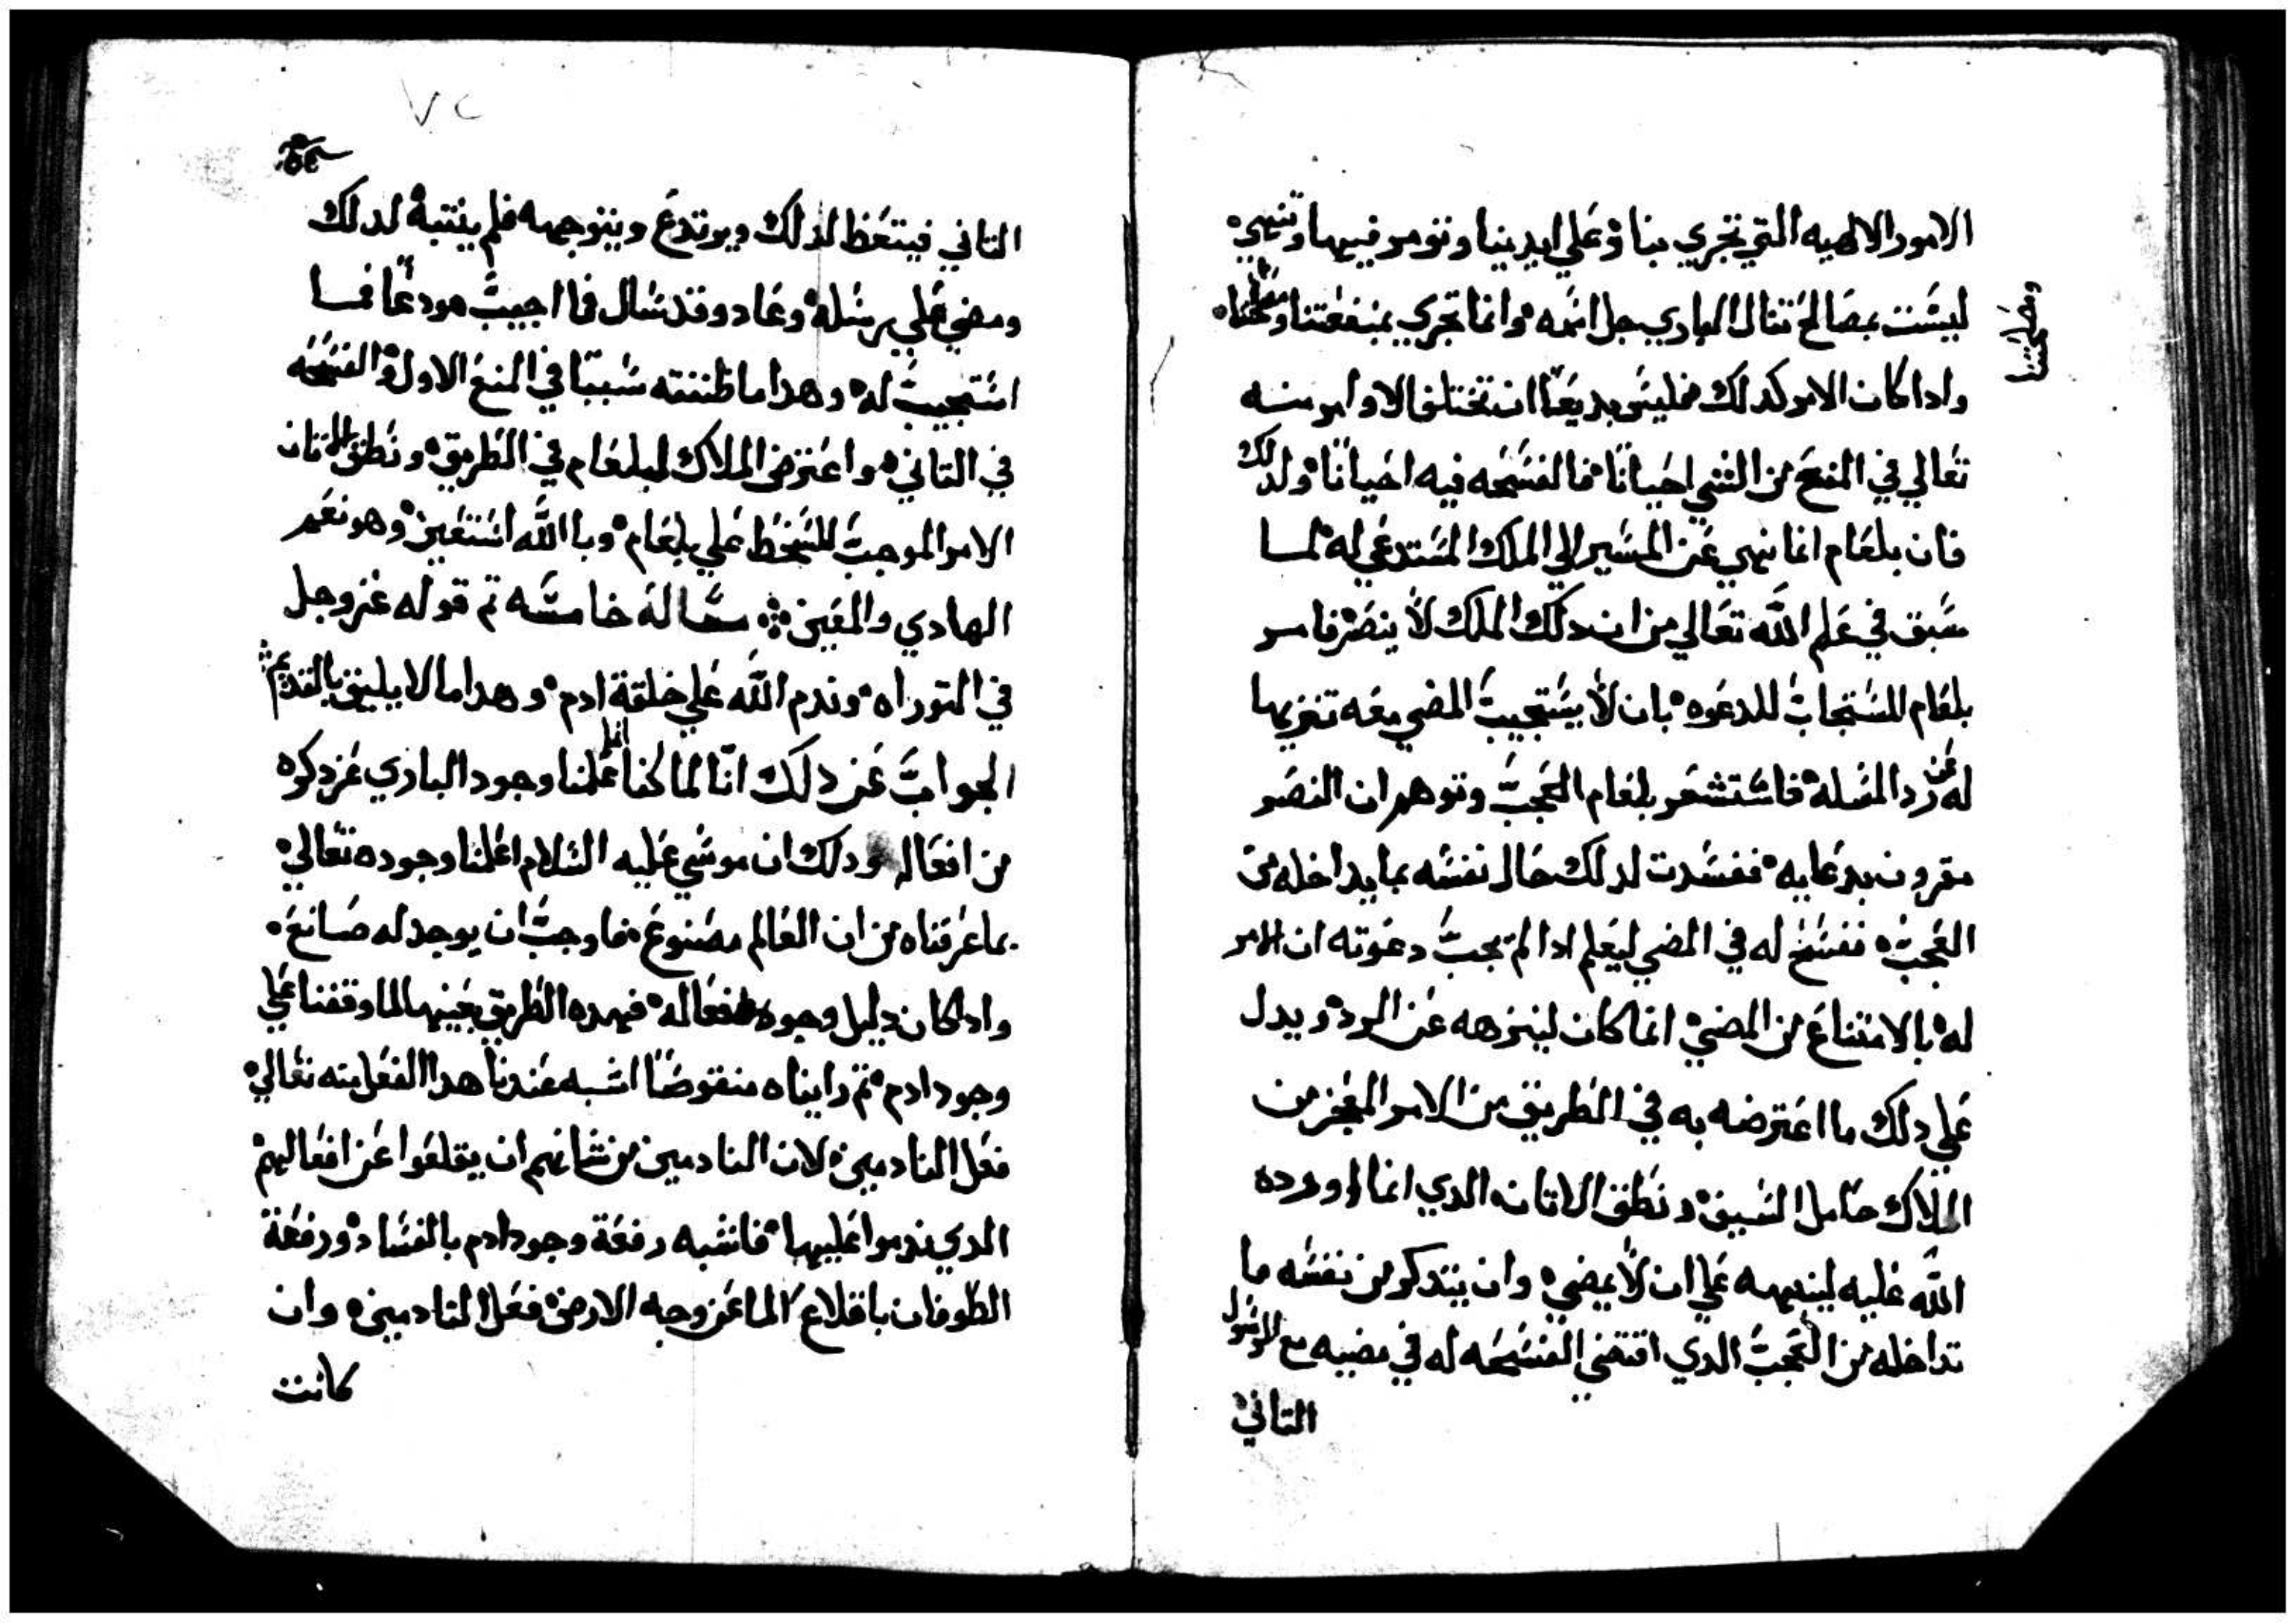 الامور الالهيه التي تجري بنا وعلي ايدينا ونومر فيها وننهي
ليست بمصالح تنال الباري جل اسمه وانما تجري بمنفعتنا ومصلحتنا
ومصلحتنا
واداكان الامر كدلك فليس بديعًا ان تختلف الاوامر منه
تعالي في المنع من الشي احيانًا فالفسحه فيه احيانًا ولدلك
فان بلعام انما نهي عن المسير الي الملك المستدعي له لما
سبق في علم الله تعالي من ان دلك الملك لا ينصر فامر
بلعام المستجاب للدعوه بان لا يستجيب المضي معه تنزيها
له عن رد المسله فاستشعر بلعام العجب وتوهم ان النصر
مقرون بدعايه ففسدت لدلك حال نفسه بما يداخله من
العجب ففسح له في المضي ليعلم ادا لم تجب دعوته ان الامر
له بالامتناع من المضي انما كان لينزهه عن الرد ويدل
علي دلك ما اعترضه به في الطريق من الامر المعجز من
الملاك حامل السيف ونطق الاتان الدي انما اورده
الله عليه لينبهه علي ان لا يمضي وان يتدكر من نفسه ما
تداخله من العجب الدي اقتضي الفسحه له في مضيه مع الرسول
التاني
٧٢
التاني فيتعظ لدلك ويرتدع ويتوجه فلم ينتبه لدلك
ومضي علي رسله وعاد وقد سال فما اجيب ودعا فما
استجيب له وهدا ما ظننته سببًا في المنع الاول والفسحه
في التاني واعترض الملاك لبلعام في الطريق ونطق الاتان
الامر الموجب للسخط علي بلعام وبا الله استعين وهو نعم
الهادي والمعين مساله خامسه تم قوله عز وجل
في التوراه وندم الله علي خلقة ادم وهدا ما لا يليق بالقديم
الجواب عن دلك انّا لما كنا انما علمنا وجود الباري عز دكره
من افعاله ودلك ان موسي عليه السلام اعلمنا وجوده تعالي
بما عرفناه من ان العالم مصنوع فاوجب ان يوجد له صانع
واداكان دليل وجوده افعاله فهده الطريق بعينها لما وقفنا علي
وجود ادم تم رايناه منقوضًا اشبه عندنا هدا الفعل منه تعالي
فعل النادمين لان النادمين من شانهم ان يقلعوا عن افعالهم
الدي ندموا عليها فاشبه رفعة وجود ادم بالفساد ورفعة
الطوفان باقلاع الما عن وجه الارض فعل النادمين وان
كانت